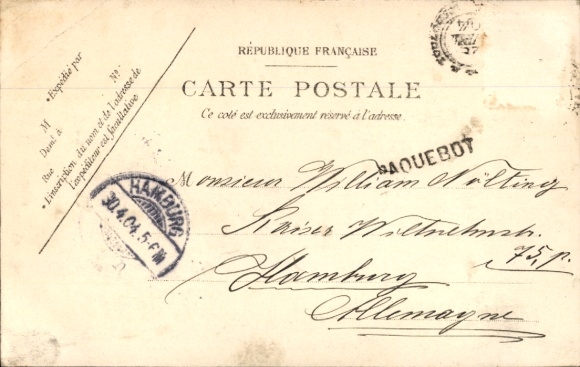 RÉPUBLIQUE FRANÇAISE
CARTE POSTALE
Ce coté est exclusivement réservé à l'adresse.
• Expédié par
M No
Demt à
Rue
• L'inscription du nom et de l'adresse de
l'expéditeur est facultative
PAQUEBOT
HAMBURG
30.4.04.5-6N
Monsieur William Nölting
Kaiser Wilhelmstr.
75, p.
Hamburg
Allemagne